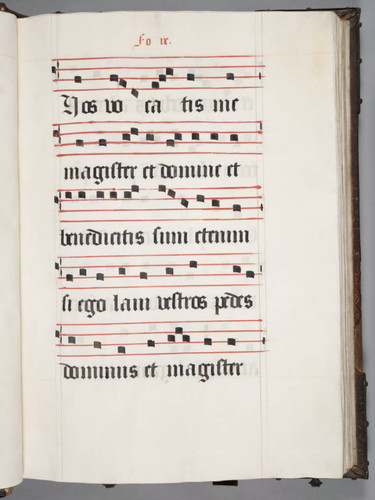 Fo ix.
Vos vo ca tis me
magister et domine et
benedicitis sum etenim
si ego laui vestros pedes
dominus et magister